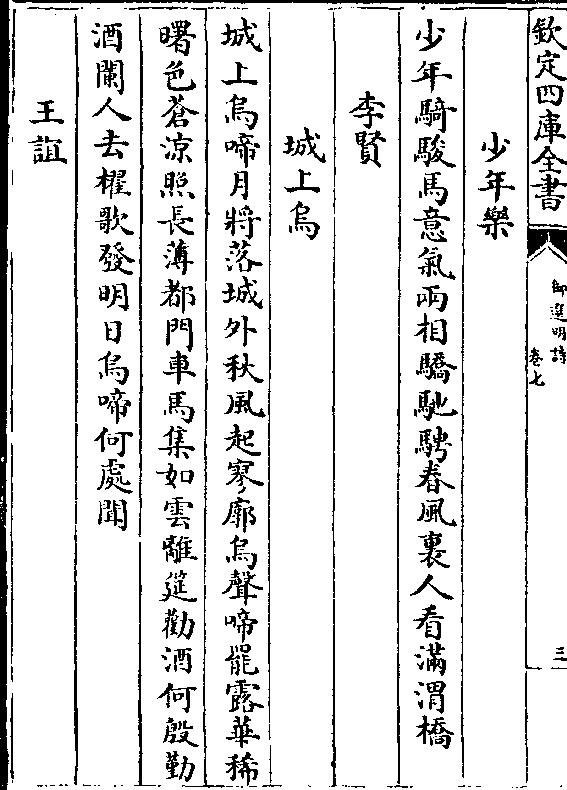 欽定四庫全書
御選明詩
卷七
三
少年樂
少年騎駿馬意氣兩相驕馳騁春風裏人看滿渭橋
李賢
城上烏
城上烏啼月將落城外秋風起寥廓烏聲啼罷露華稀
曙色蒼涼照長薄都門車馬集如雲離筵勸酒何殷勤
酒闌人去櫂歌發明日烏啼何處聞
王誼